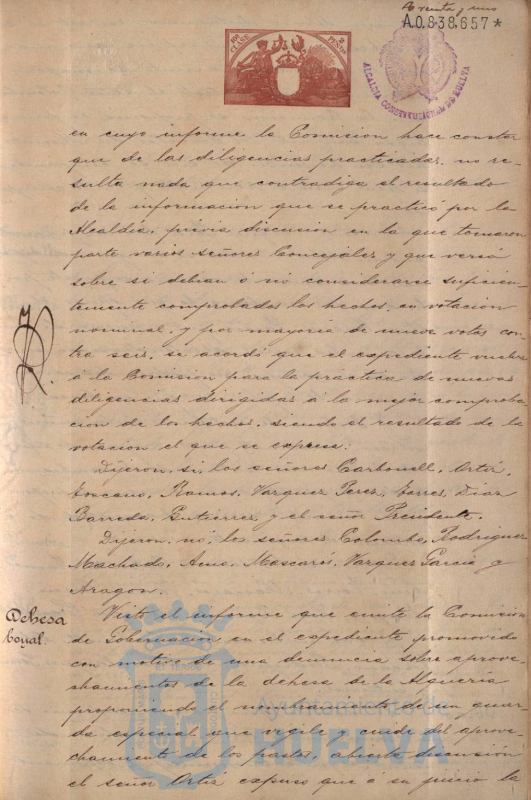 treinta y uno
A.0.838,657*
10ª CLASE
2 PESETAS
ALCALDIA CONSTITUCIONAL DE HUELVA
en cuyo informe la Comision hace constar
que de las diligencias practicadas, no re-
sulta nada que contradiga el resultado
de la informacion que se practicó por la
Alcaldía, previa discusion en la que tomaron
parte varios señores Concejales y que versó
sobre si debian ó nó considerarse suficien-
temente comprobados los hechos, en votación
nominal, y por mayoría de nueve votos con-
tra seis, se acordó que el expediente vuelva
á la Comision para la práctica de nuevas
diligencias dirigidas á la mejor comproba-
cion de los hechos, siendo el resultado de la
votacion el que se expresa:
Dijeron, si, los señores Carbonell, Ortiz,
Toscano, Ramos, Vazquez Perez, Torres, Diaz
Barreda, Gutierrez, y el señor Presidente.
Dijeron, nó, los señores Colombo, Rodriguez
Machado, Amo, Mascarós, Vazquez Garcia y
Aragon.
Dehesa
boyal.
Visto el informe que emite la Comision
de Gobernacion en el expediente promovido
con motivo de una denuncia sobre aprove-
chamientos de la dehesa de la Alqueria
proponiendo el nombramiento de un guar-
da especial que vigile y cuide del aprove-
chamiento de los pastos, abierta discusión
el señor Ortiz expuso que á su juicio la
Ayuntamiento de
HUELVA